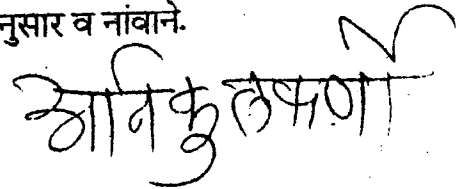 नुसार व नांवाने.
कुलकर्णी